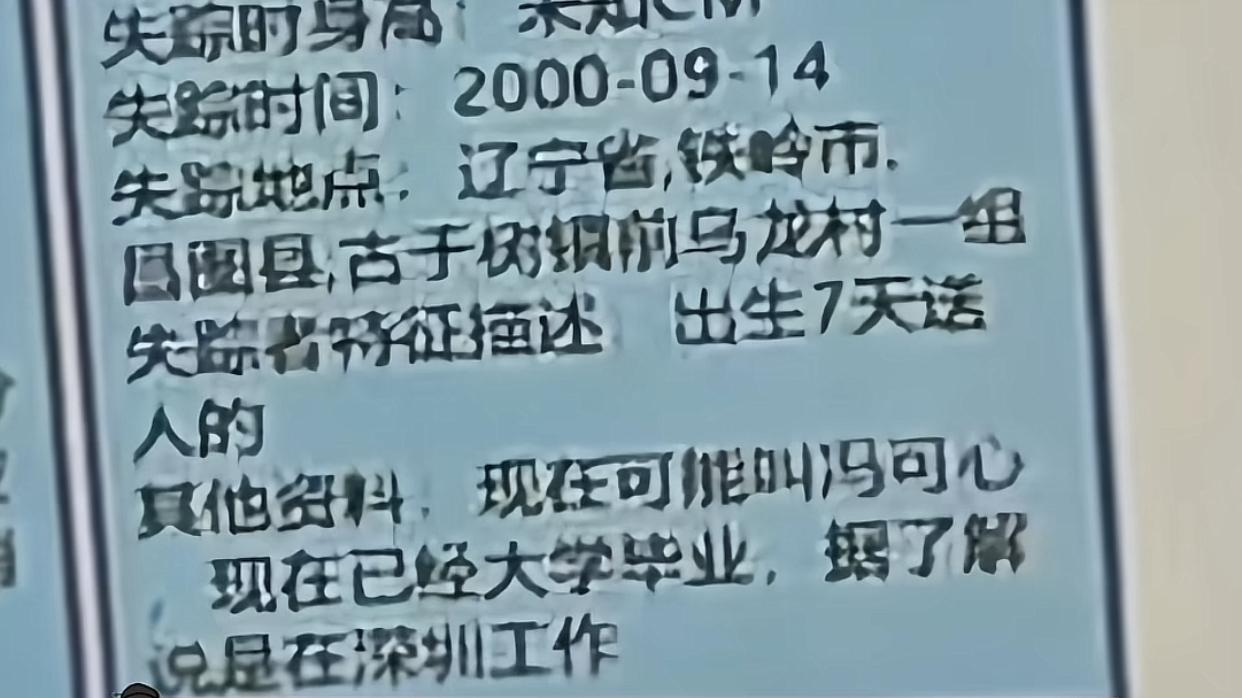 失踪时身高：未知CM
失踪时间：2000-09-14
失踪地点：辽宁省,铁岭市,
昌图县,古于树镇前乌龙村一组
失踪者特征描述 出生7天送
人的
其他资料：现在可能叫冯可心
现在已经大学毕业，据了解
说是在深圳工作